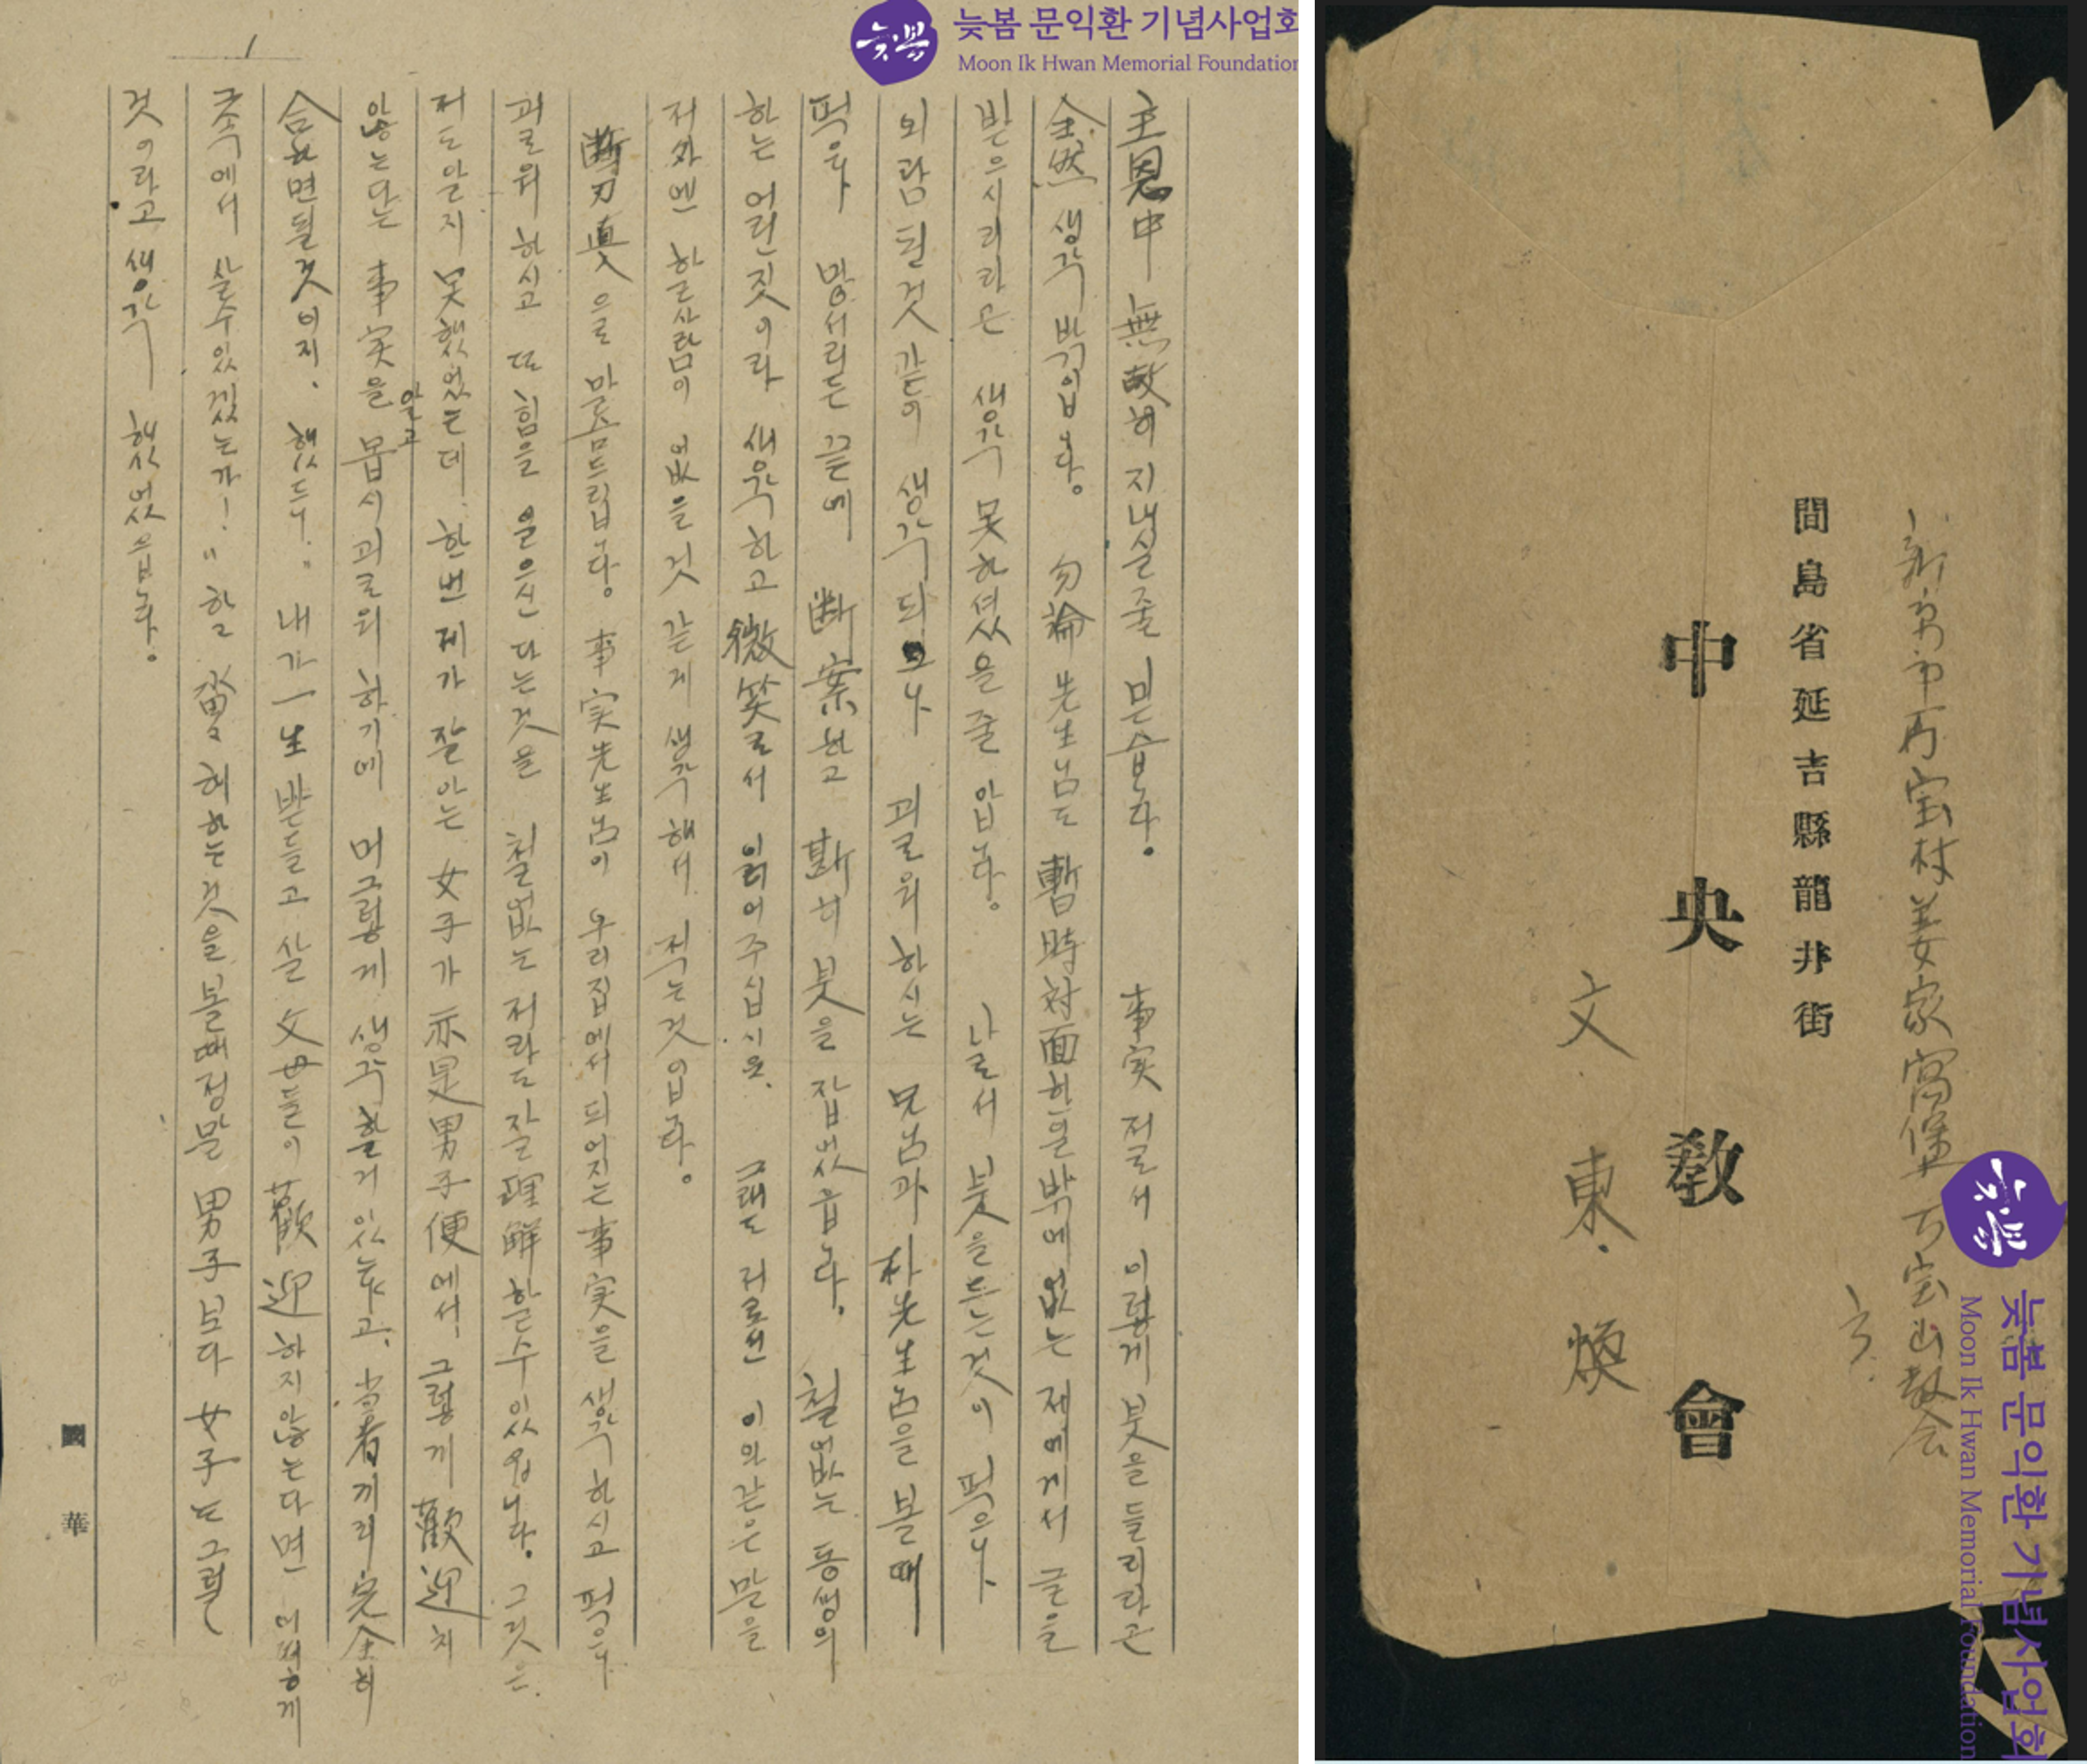 늦봄 문익환 기념사업회
Moon Ik Hwan Memorial Foundation
1
主恩中 無故히 지내실 줄 믿습니다. 事実 저로서 이렇게 붓을 들리라곤
全然 생각 밖입니다. 勿論 先生님도 暫時 対面한 일 밖에 없는 저에게서 글을
받으시리라곤 생각 못하셨을 줄 압니다. 나로서 붓을 든는 것이 퍽으나
외람된 것 같이 생각되으나 괴로워 하시는 兄님과 朴先生님을 볼 때
퍽으나 망서리든 끝에 断案하고 斷히 붓을 잡었습니다. 철없는 동생의
하는 어린 짓이라 생각하고 微笑로서 읽어 주십시요. 그래도 저로선 이와 같은 말을
저 外엔 할 사람이 없을 것 같게 생각해서 적는 것입니다.
으로 말슴드립니다. 事実 先生님이 우리 집에서 되어지는 事実을 생각하시고 퍽으나
괴로워 하시고 또 힘을 을으신다는 것을 철없는 저라도 잘 理解할 수 있읍니다. 그것은
저도 알지 못했었는데 한번 제가 잘 아는 女子가 亦是 男子便에서 그렇게 歡迎치
않는다는 事実을 알고 몹시 괴로워 하기에 머 그렇게 생각할 거 있는냐고, 当者끼리 完全히
合하면 될 것이지. 했드니.. 내가 一生 받들고 살 父母들이 歡迎하지 않는다면 어떻게
그 속에서 살 수 있겠는가! " 할 때 정말 男子보다 女子는 그럴
것이라고 생각 했었읍니다.
國 華
新京市 万宝村 姜家窩堡 万宝山敎会
方
間島省延吉縣龍井街
中央敎會
文東煥
늦봄 문익환 기념사업회
Moon Ik Hwan Memorial Foundation